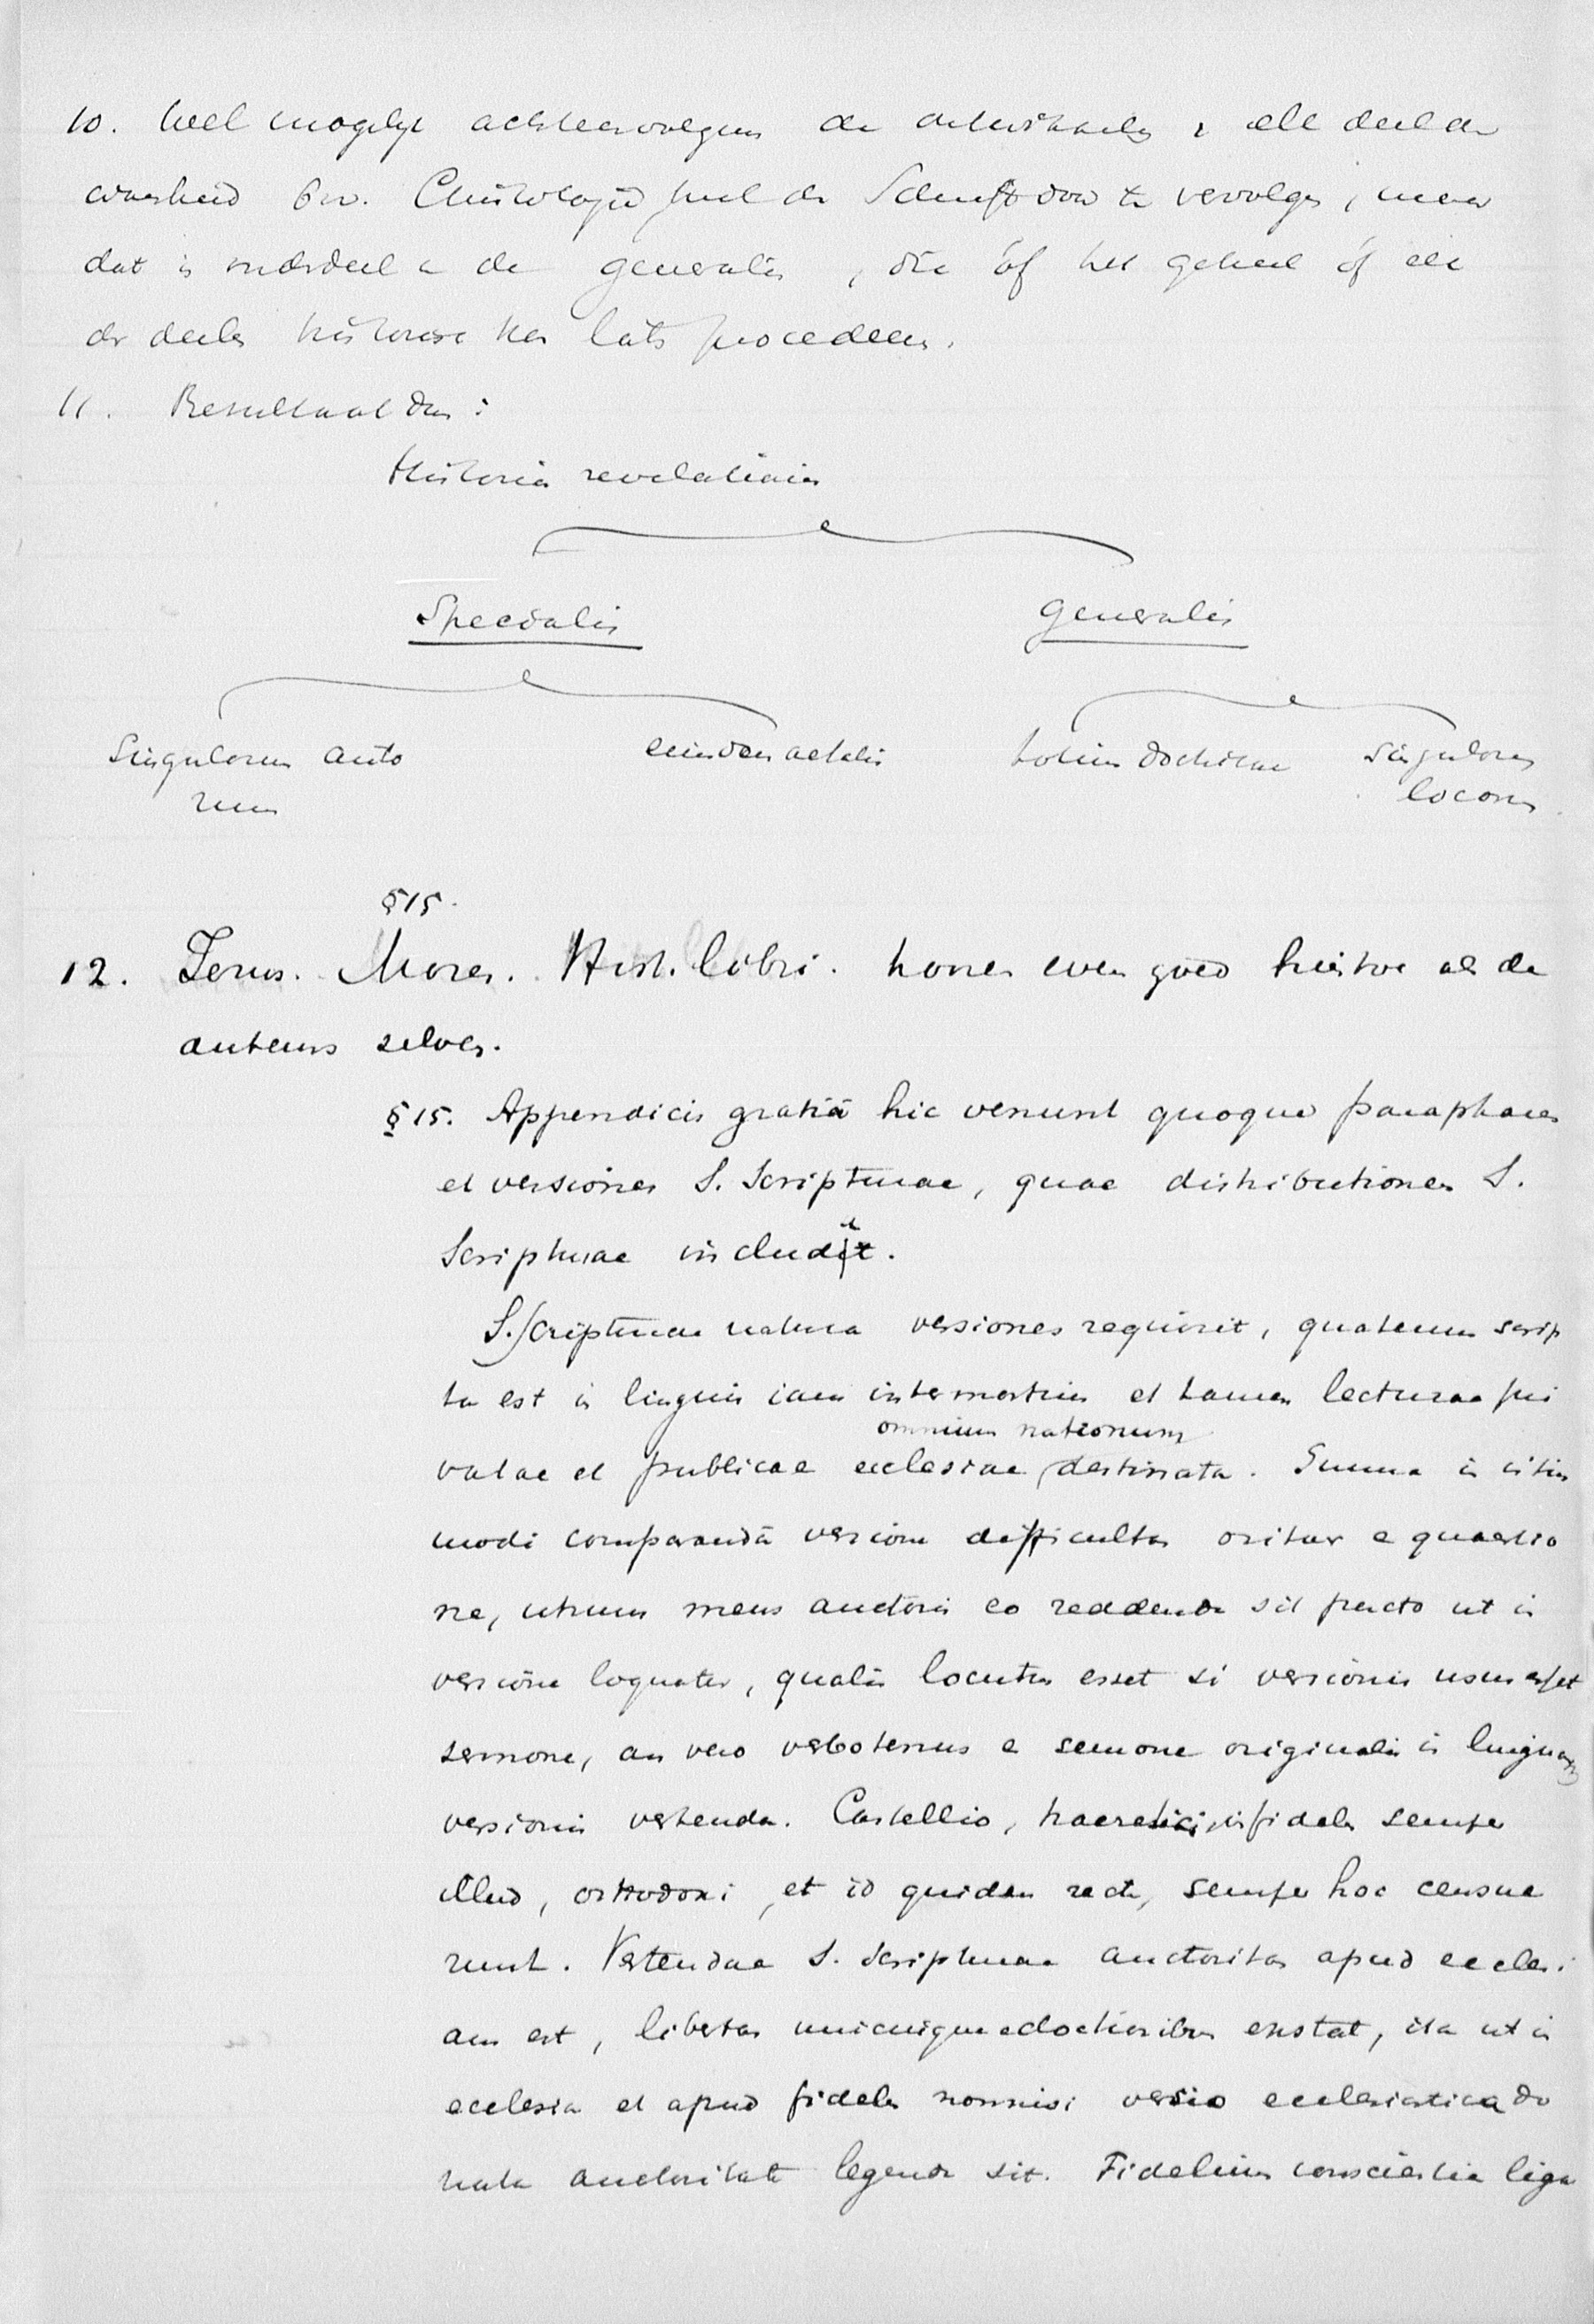 10. Wel mogelijk achtereenvolgens de ontwikkeling elk deel der
waarheid bv. Christologie heel de Schrift door te vervolgen, maar
dat is onderdeel de generalis, die óf het geheel óf elk
der deelen procedeeren.
11. Resultaat dus:
Historia revelationis
Specialis generalis
Singulorum auto eiusdem aetatis totius doctrinae singulorum
rum locorum
§15.
12. Jerus. Mozes. Hist. libri. even goed als de
auteurs zelven.
§15. Appendicis gratiâ hic veniunt quoque paraphrases
et versiones S. Scripturae, quae distributionem S.
Scripturae includit.
S. Scripturae natura versiones requirit, quatenus scrip
ta est in linguis iam intermortuis et tamen lecturae pri
omnium nationum
vatae et publicae ecclesiae destinata. Summa in istius
modi comparandâ versione difficultas oritur e quaestio
ne, utrum mens auctoris eo reddenda sit pacto ut in
versione loquatur, qualis locutus esset si versionis usus esset
sermone, an vero verbotenus e sermone originali in linguam
versionis vertenda. Castellio, haeretici, infideles semper
illud, orthodoxi, et id quidem recte, semper hoc censue
runt. Vertendae S. Scripturae auctoritas apud ecclesi
am est, libertas unicuique doctioribus exstat, ita ut in
ecclesia et apud fideles nonnisi versio ecclesiastica do
nata auctoritate legenda sit. Fidelium conscientia liga